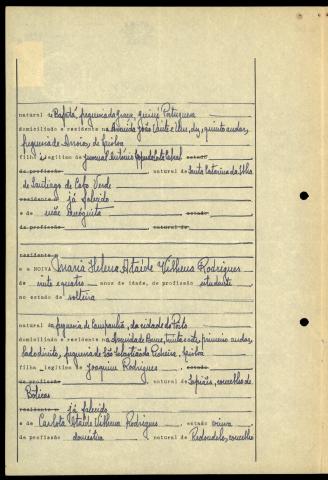 natural de Bafatá, freguesia da Graça, Guiné Portuguesa
domiciliado e residente na Avenida João Vinte e Um, dez, quinto andar,
freguesia de Arroios, de Lisboa
filho ilegítimo de Juvenal António Lopes da Costa Cabral estado
de profissão natural de Santa Catarina da Ilha
de Santiago de Cabo Verde
residente já falecido
e de mãe incógnita estado
de profissão natural de
residente
e a NOIVA Maria Helena Ataíde Vilhena Rodrigues
de vinte e quatro anos de idade, de profissão estudante
no estado de solteira
natural da freguesia de Campanhã, da cidade do Porto
domiciliada e residente na Avenida de Berne, vinte e sete, primeiro andar,
lado direito, freguesia de São Sebastião da Pedreira, Lisboa
filha legítima de Joaquim Rodrigues estado
de profissão natural de Sapiãos, concelho de
Boticas
residente já falecido
e de Carlota Ataíde Vilhena Rodrigues, estado viúva
de profissão doméstica natural de Redondelo, concelho